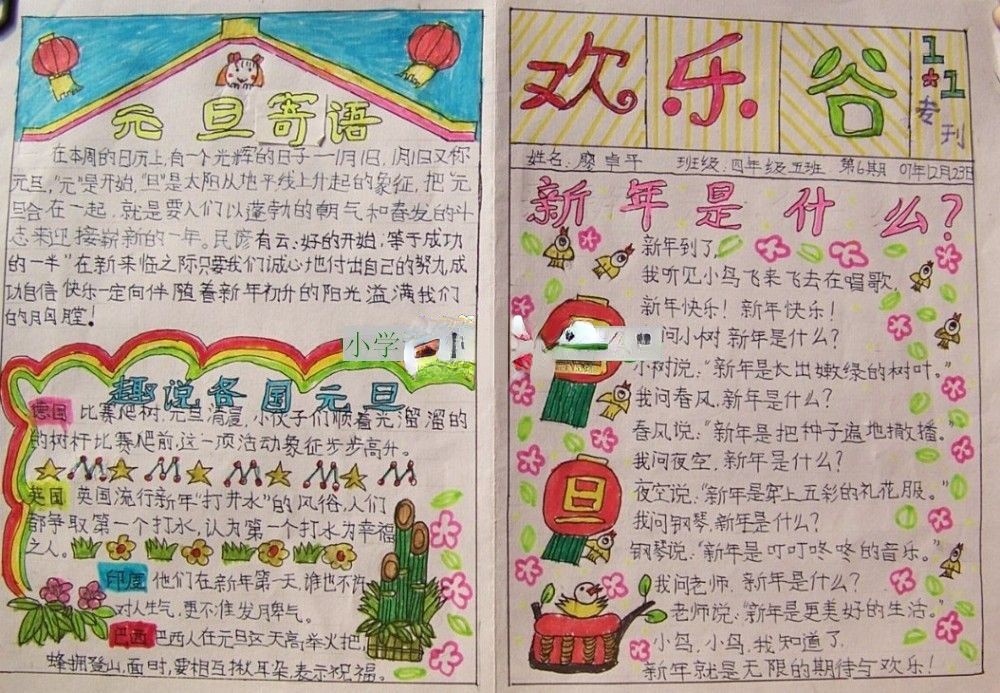 元旦寄语
在本周的日历上,有一个光辉的日子——1月1日,1月1日又称
元旦,"元"是开始,"旦"是太阳从地平线上升起的象征,把"元
旦合在一起,就是要人们以蓬勃的朝气和奋发的斗
志来迎接崭新的一年。民谚有云:好的开始,等于成功
的一半"在新来临之际只要我们诚心地付出自己的努力,成
功自信快乐一定向伴随着新年初升的阳光溢满我们
的胸膛!
小学
趣说各国元旦
德国 比赛爬树,元旦清晨,小伙子们顺着光溜溜的
的树杆比赛爬前,这一项活动象征步步高升。
英国 英国流行新年"打井水"的风俗,人们
都争取第一个打水,认为第一个打水为幸福
之人。
印度 他们在新年第一天,谁也不许
对人生气,更不准发月卑气。
巴西 巴西人在元旦这天高举火把,
蜂拥登山,面时,要相互揪耳朵,表示祝福。
欢乐谷
1·1
专刊
姓名:廖卓平 班级:四年级五班 第6期 07年12月23日
新年是什么?
新年到了,
我听见小鸟飞来飞去在唱歌,
新年快乐!新年快乐!
问小树 新年是什么?
小树说:"新年是长出嫩绿的树叶。"
我问春风,新年是什么?
春风说:"新年是把种子遍地撒播。"
我问夜空,新年是什么?
夜空说:"新年是穿上五彩的礼花服。"
我问钢琴,新年是什么?
钢琴说:"新年是叮叮咚咚的音乐。"
我问老师,新年是什么?
老师说:"新年是更美好的生活。"
小鸟,小鸟,我知道了,
新年就是无限的期待与欢乐!
旦